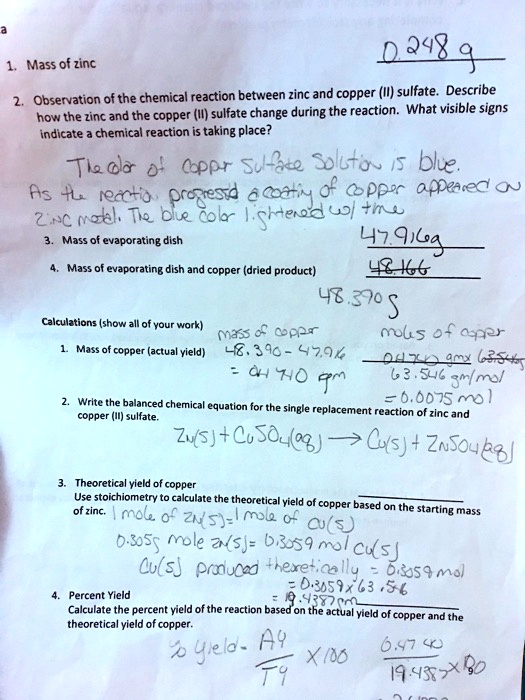 a
0.248 g
1. Mass of zinc
2. Observation of the chemical reaction between zinc and copper (II) sulfate. Describe
how the zinc and the copper (II) sulfate change during the reaction. What visible signs
indicate a chemical reaction is taking place?
The color of Copper Sulfate Solution is blue.
As the reaction progressed a coating of copper appeared on
Zinc metal. The blue color lightened w/ time
3. Mass of evaporating dish 47.916g
4. Mass of evaporating dish and copper (dried product) 48.166
48.390 g
Calculations (show all of your work)
mass of copper moles of copper
1. Mass of copper (actual yield) 48.390 - 47.916
= 0.4740 gm
63.546 gm/mol
= 0.0075 mol
2. Write the balanced chemical equation for the single replacement reaction of zinc and
copper (II) sulfate.
Zn(s) + CuSO4(aq) → Cu(s) + ZnSO4(aq)
3. Theoretical yield of copper
Use stoichiometry to calculate the theoretical yield of copper based on the starting mass
of zinc. 1 mole of Zn(s) = 1 mole of Cu(s)
0.3059 mole Zn(s) = 0.3059 mol Cu(s)
Cu(s) produced theoretically = 0.3059 mol
= 0.3059 x 63.546
= 19.4387 gm
4. Percent Yield
Calculate the percent yield of the reaction based on the actual yield of copper and the
theoretical yield of copper.
% yield = AY 0.4740
TY X 100 19.4387 x 100